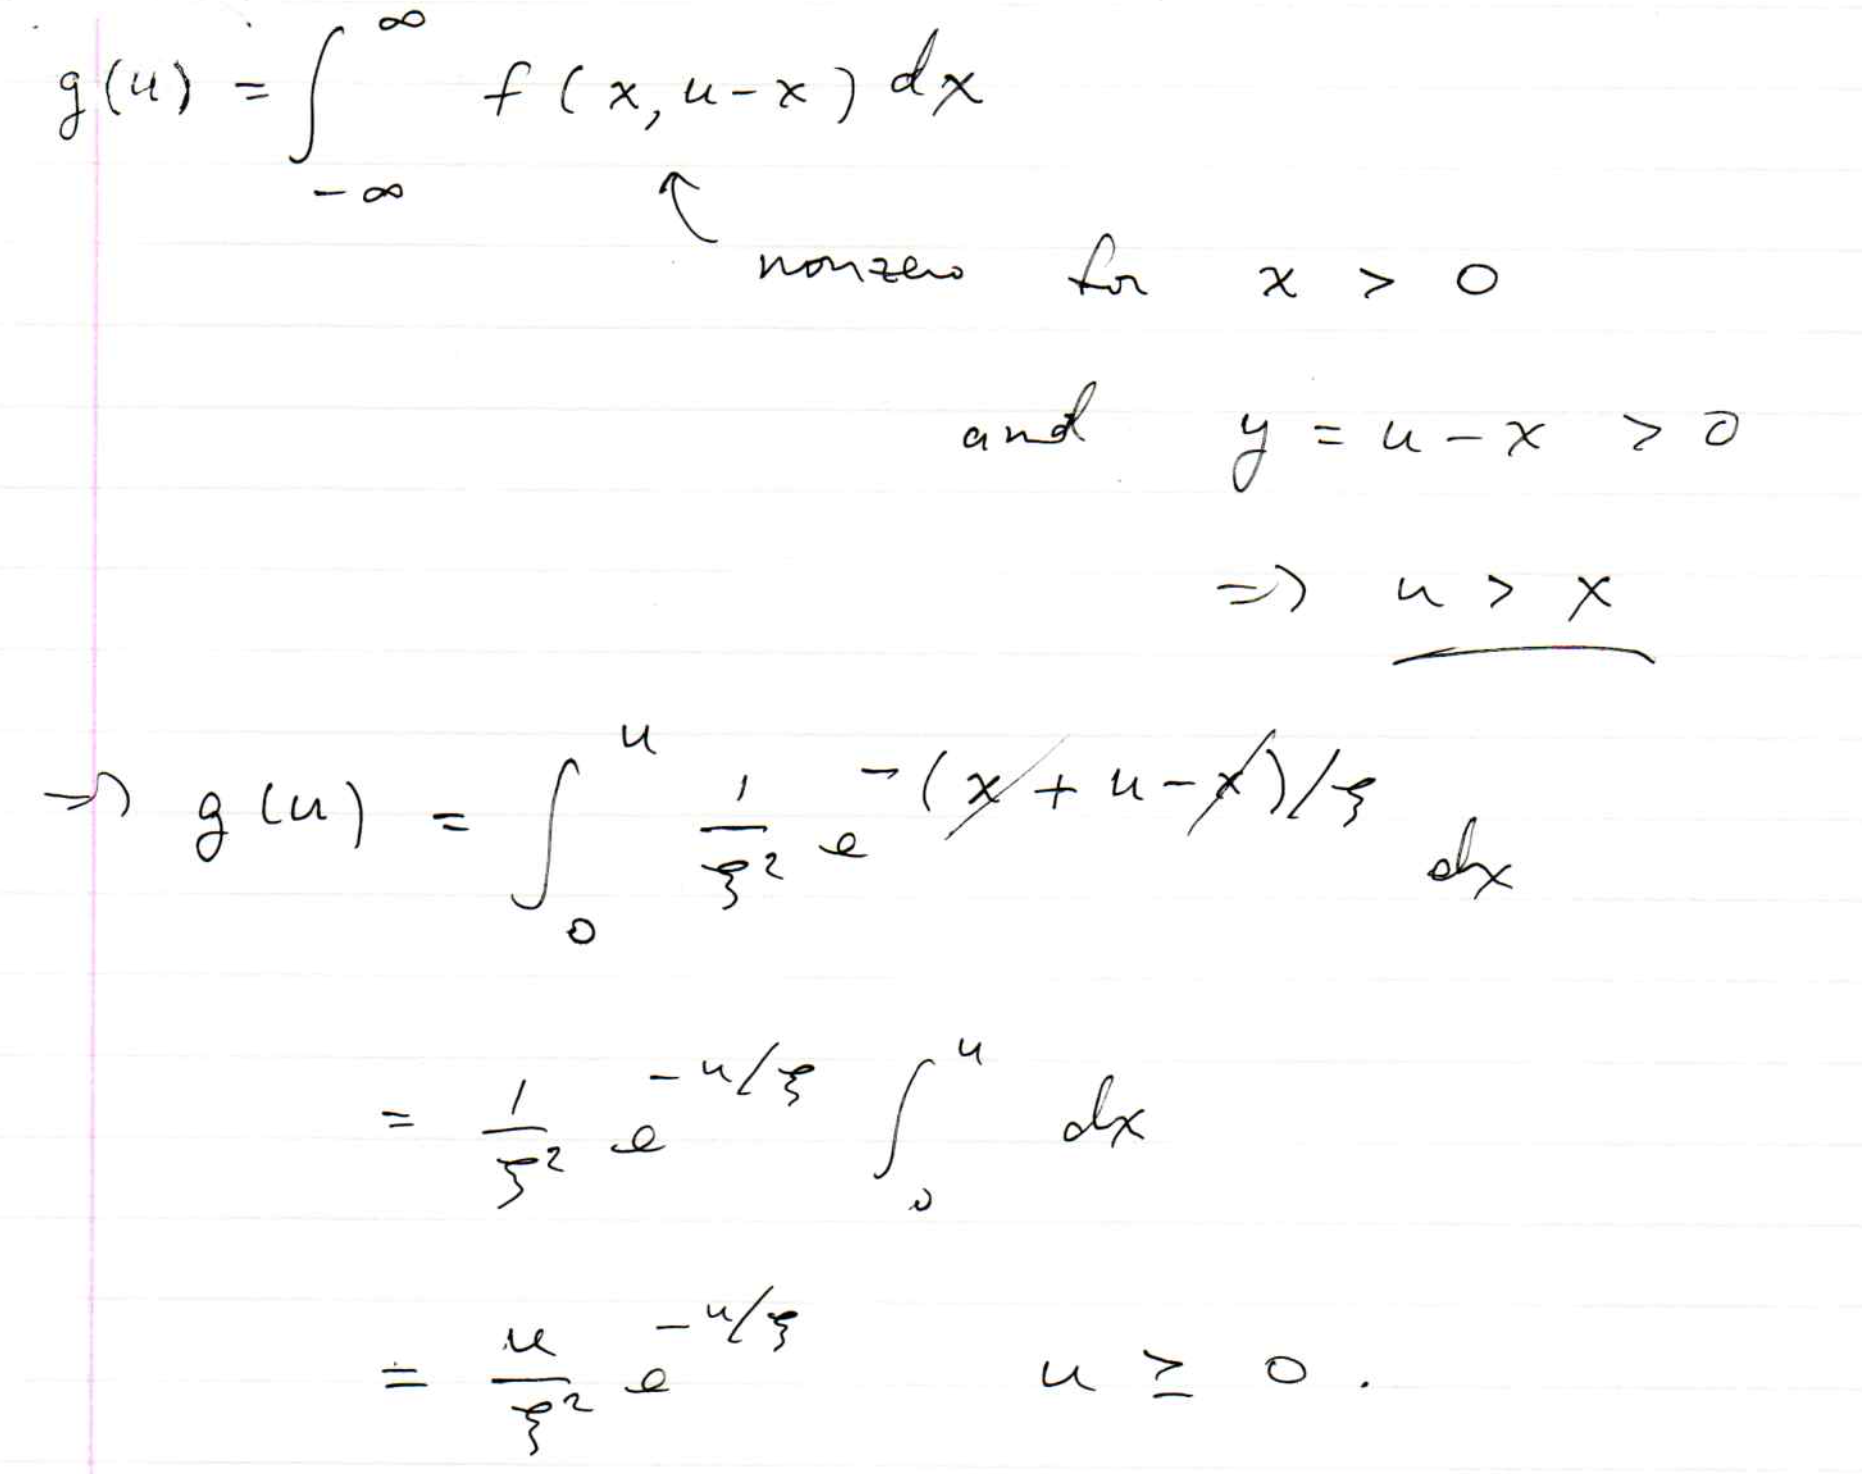 g(u) = ∫_{-∞}^{∞} f(x, u-x) dx
↑ nonzero for x > 0
and y = u - x > 0
=> u > x
=> g(u) = ∫_0^u 1/ξ² e^{-(x + u - x)/ξ} dx
= 1/ξ² e^{-u/ξ} ∫_0^u dx
= u/ξ² e^{-u/ξ} u ≥ 0.